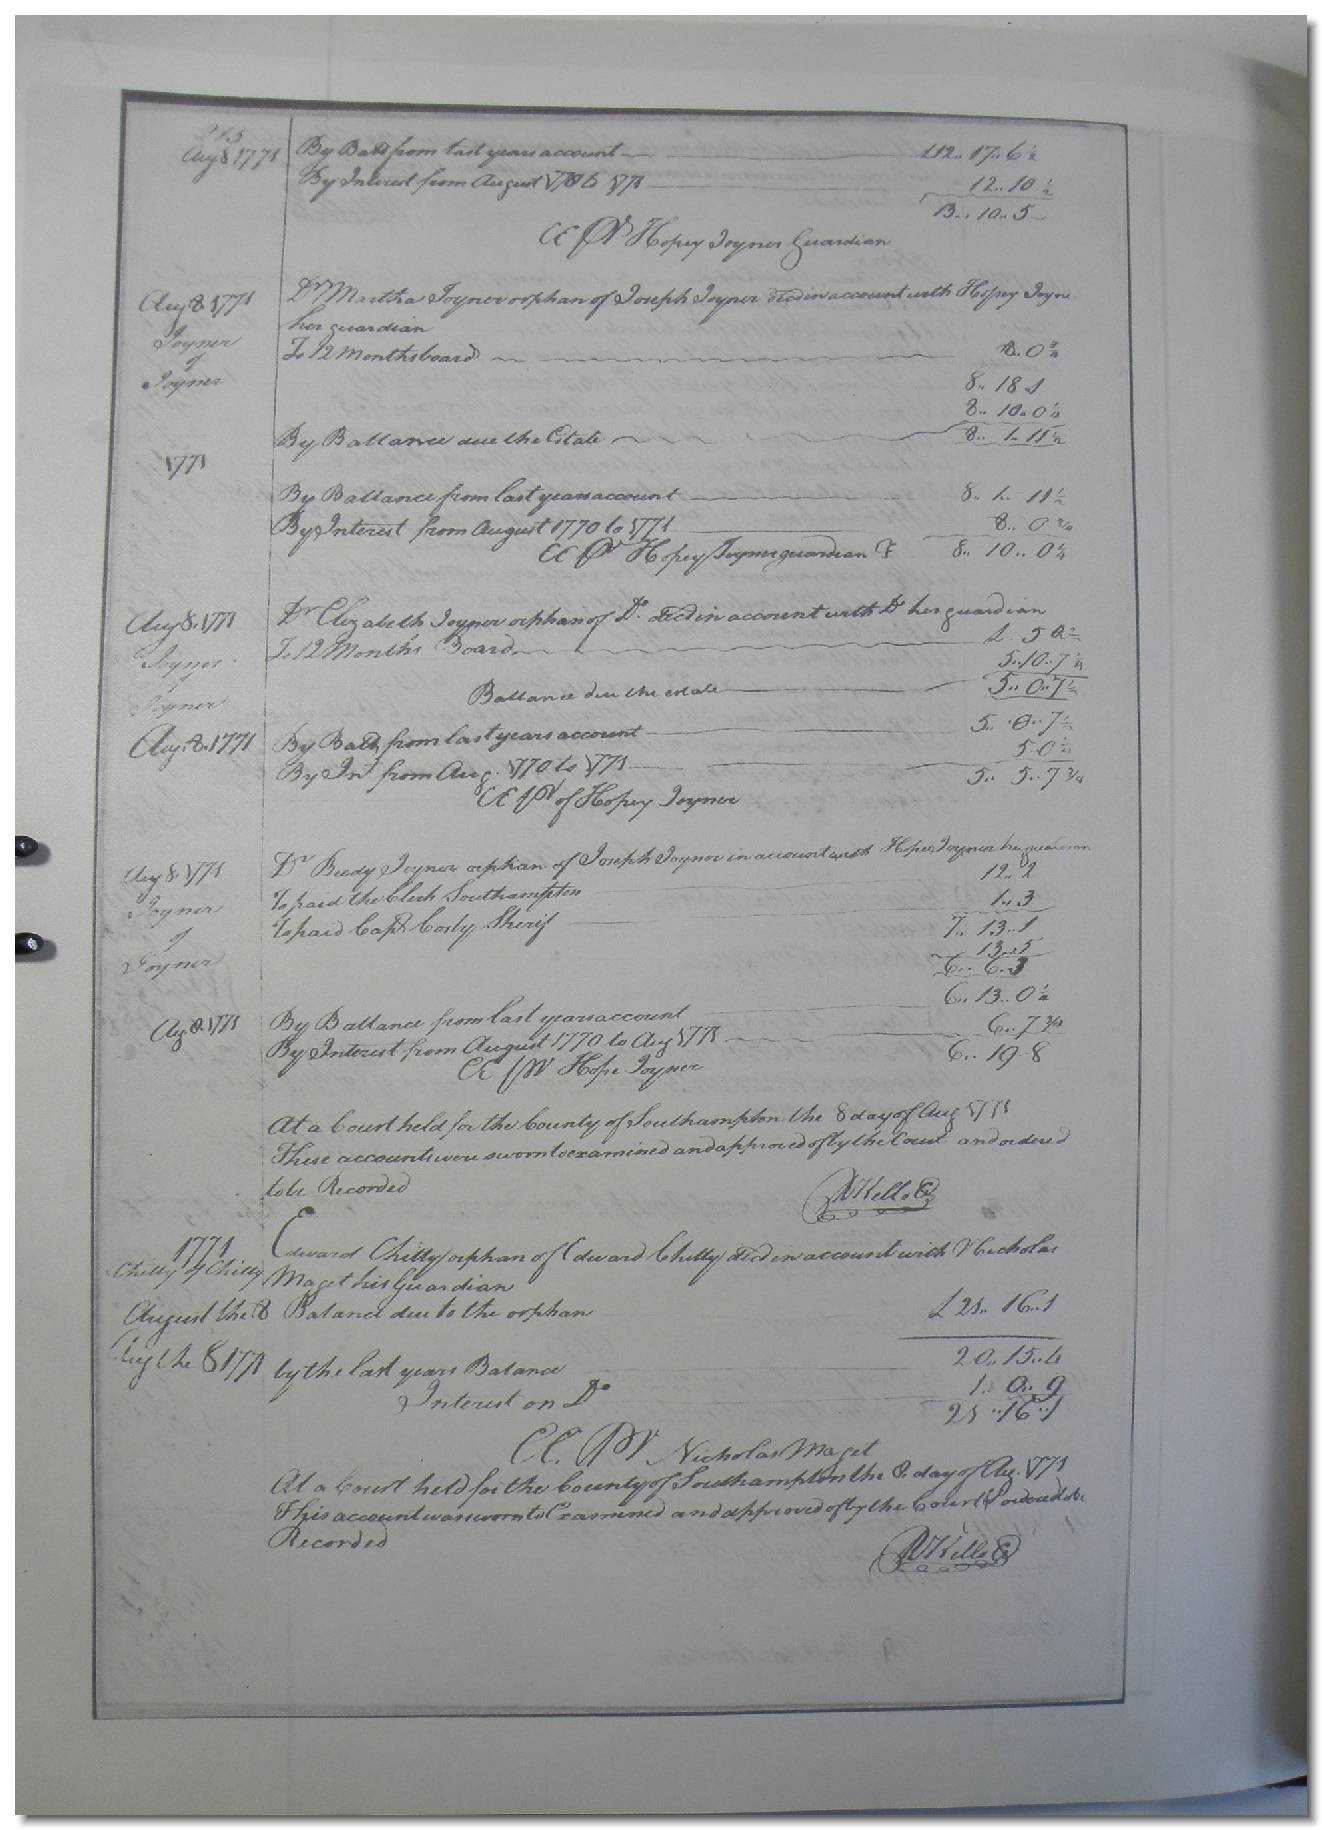 215
Aug 8 1771 By Balls from last years account £12.. 17.. 6 1/2
By Interest from August 1770 to 1771 12.. 10 1/2
13.. 10.. 5
EE Pr Hopey Joyner Guardian
Aug 8. 1771 Dr Martha Joyner orphan of Joseph Joyner decd in account with Hopey Joyne
her guardian
Joyner
of
Joyner
To 12 Months board 8.. 0 3/4
8.. 18 1
8.. 10.. 0 1/4
By Ballance due the Estate 8.. 1.. 11 1/2
1771
By Ballance from last years account 8.. 1.. 11 1/2
By Interest from August 1770 to 1771 8.. 0 3/4
EE Pr Hopey Joyner guardian 8.. 10.. 0 1/4
Aug 8. 1771 Dr Elizabeth Joyner orphan of Do. decd in account with Do her guardian
Joyner To 12 Months Board 5 0
5.. 10.. 7
of
Joyner Ballance due the estate 5.. 0.. 7 1/2
Aug. 8. 1771 By Balls from last years account 5.. 0.. 7 1/2
By Int from Aug. 1770 to 1771 5.. 0
5.. 5.. 7 3/4
EE Pr of Hopey Joyner
Aug 8 1771 Dr Beedy Joyner orphan of Joseph Joyner in account with Hope Joyner her guardian
Joyner To paid the Clerk Southampton 12.. 2
of To paid Capt Cosby Sherif 1.. 3
Joyner 7.. 13.. 1
13.. 5
6.. 6.. 3
Aug 8. 1771 By Ballance from last years account 6.. 13.. 0 1/4
By Interest from August 1770 to Aug 1771 6.. 7 3/4
6.. 19.. 8
EE Pr Hope Joyner
At a Court held for the County of Southampton the 8 day of Aug 1771
These accounts were sworn to examined and approved of by the Court and ordered
to be Recorded
R Kello C
1771 Edward Chitty orphan of Edward Chitty decd in account with Nicholas
Chitty of Chitty Maget his Guardian
August the 8 Balance due to the orphan £ 21.. 16.. 1
Aug the 8 1771 by the last years Balance 20.. 15.. 4
Interest on Do 1.. 0.. 9
21.. 16.. 1
EE. Pr Nicholas Maget
At a Court held for the County of Southampton the 8 day of Au. 1771
This account was sworn to Examined and approved of by the Court & ordered to be
Recorded
R Kello C